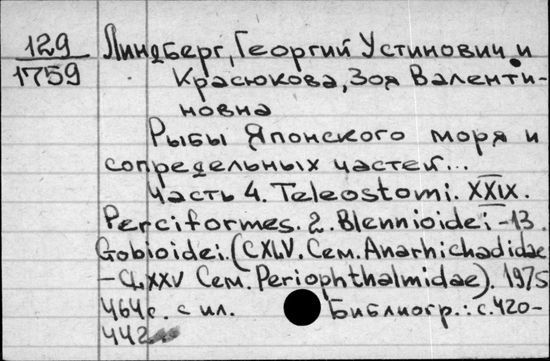 129
1759
Линдберг, Георгий Устинович и
Красюкова, Зоя Валенти-
новна
Рыбы Японского моря и
сопредельных частей...
Часть 4. Teleostomi. XXIX.
Perciformes. 2. Blennioidei - 13.
Gobioidei. (CXLV. Сем. Anarhichadidae
- CLXXV Сем. Periophthalmidae). 1975
464с. с ил. Библиогр.: с. 420-
442